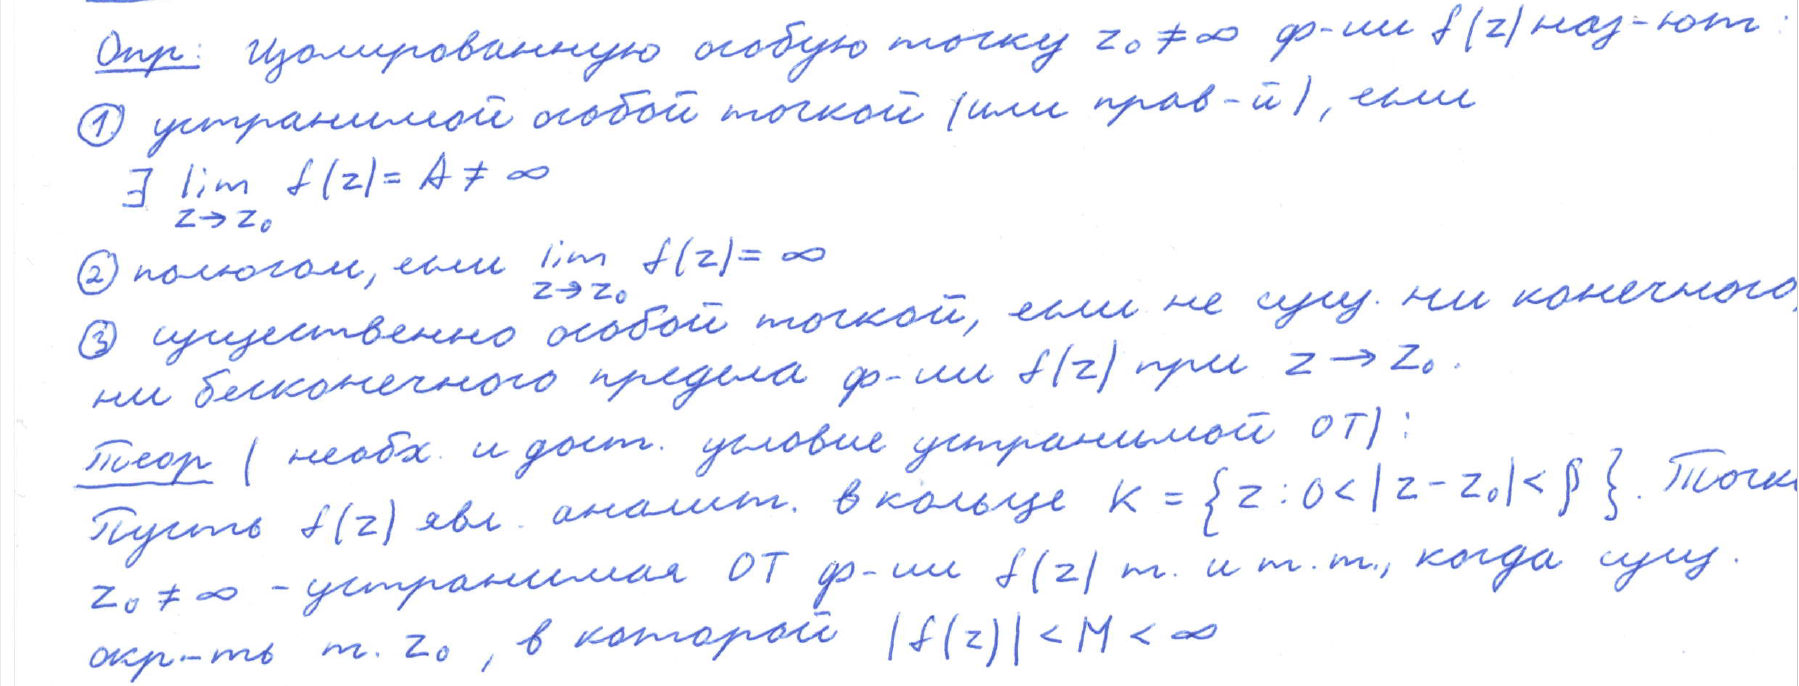 Опр: Изолированную особую точку z₀ ≠ ∞ ф-ии f(z) наз-ют:
① устранимой особой точкой (или прав-й), если
∃ lim f(z) = A ≠ ∞
z→z₀
② полюсом, если lim f(z) = ∞
z→z₀
③ существенно особой точкой, если не сущ. ни конечного,
ни бесконечного предела ф-ии f(z) при z → z₀.
Теор (необх. и дост. условие устранимой ОТ):
Пусть f(z) явл. аналит. в кольце K = {z : 0 < |z - z₀| < ρ}. Точк
z₀ ≠ ∞ - устранимая ОТ ф-ии f(z) т. и т. т., когда сущ.
окр-ть т. z₀, в которой |f(z)| < M < ∞